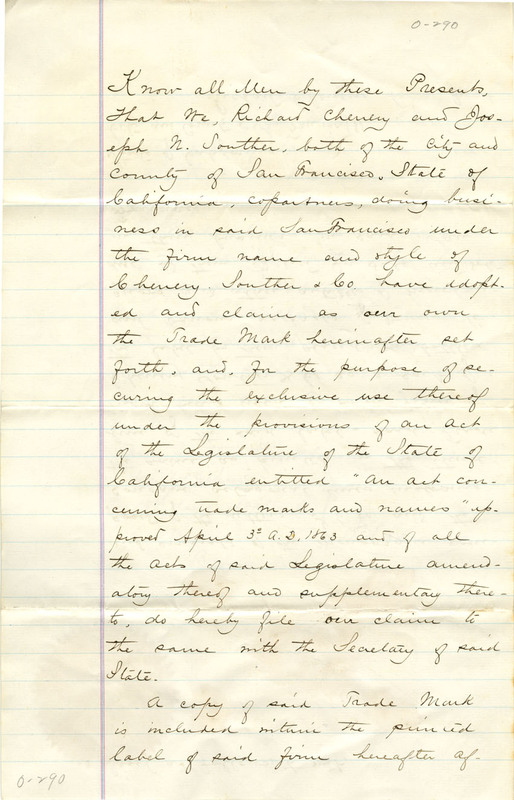 0-290
Know all Men by these Presents,
that We, Richard Chenery and Jos-
eph N. Souther, both of the City and
County of San Francisco, State of
California, copartners, doing busi-
ness in said San Francisco under
the firm name and style of
Chenery Souther & Co. have adopt-
ed and claim as our own
the Trade Mark hereinafter set
forth, and, for the purpose of se-
curing the exclusive use thereof
under the provisions of an act
of the Legislature of the State of
California entitled "An act con-
cerning trade marks and names" ap-
proved April 3d A.D. 1863 and of all
the acts of said Legislature amend-
atory thereof and supplementary there-
to, do hereby file our claim to
the same with the Secretary of said
State.
A copy of said Trade Mark
is included within the printed
label of said firm hereafter af-
0-290